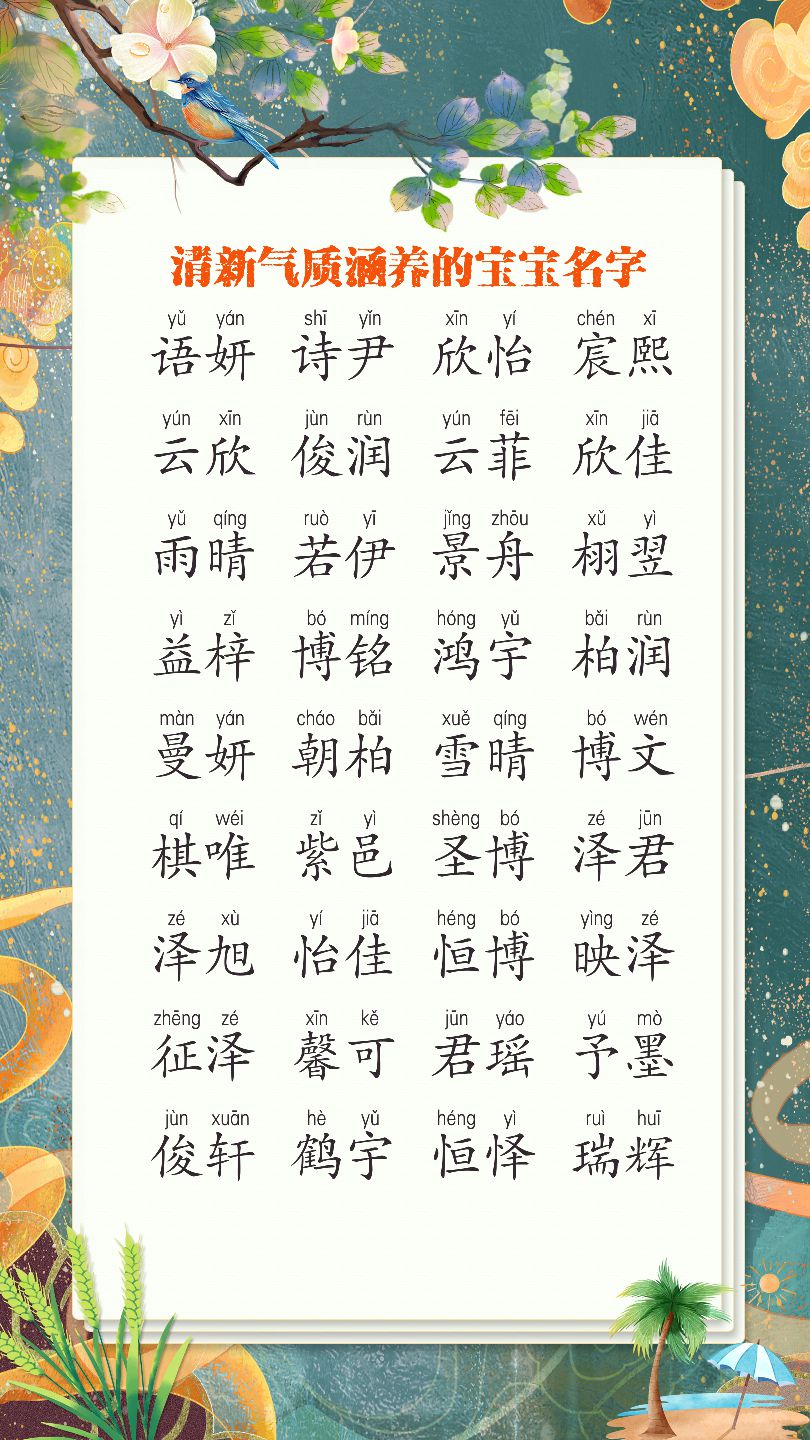 清新气质涵养的宝宝名字
yǔ yán shī yǐn xīn yí chén xī
语妍 诗尹 欣怡 宸熙
yún xīn jùn rùn yún fēi xīn jiā
云欣 俊润 云菲 欣佳
yǔ qíng ruò yī jǐng zhōu xǔ yì
雨晴 若伊 景舟 栩翌
yì zǐ bó míng hóng yǔ bǎi rùn
益梓 博铭 鸿宇 柏润
màn yán cháo bǎi xuě qíng bó wén
曼妍 朝柏 雪晴 博文
qí wéi zǐ yì shèng bó zé jūn
棋唯 紫邑 圣博 泽君
zé xù yí jiā héng bó yìng zé
泽旭 怡佳 恒博 映泽
zhēng zé xīn kě jūn yáo yú mò
征泽 馨可 君瑶 予墨
jùn xuān hè yǔ héng yì ruì huī
俊轩 鹤宇 恒怿 瑞辉